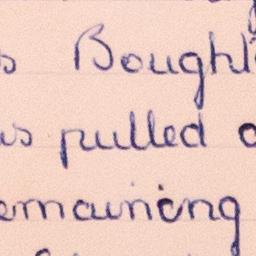 s Bought
as pulled o
emaining